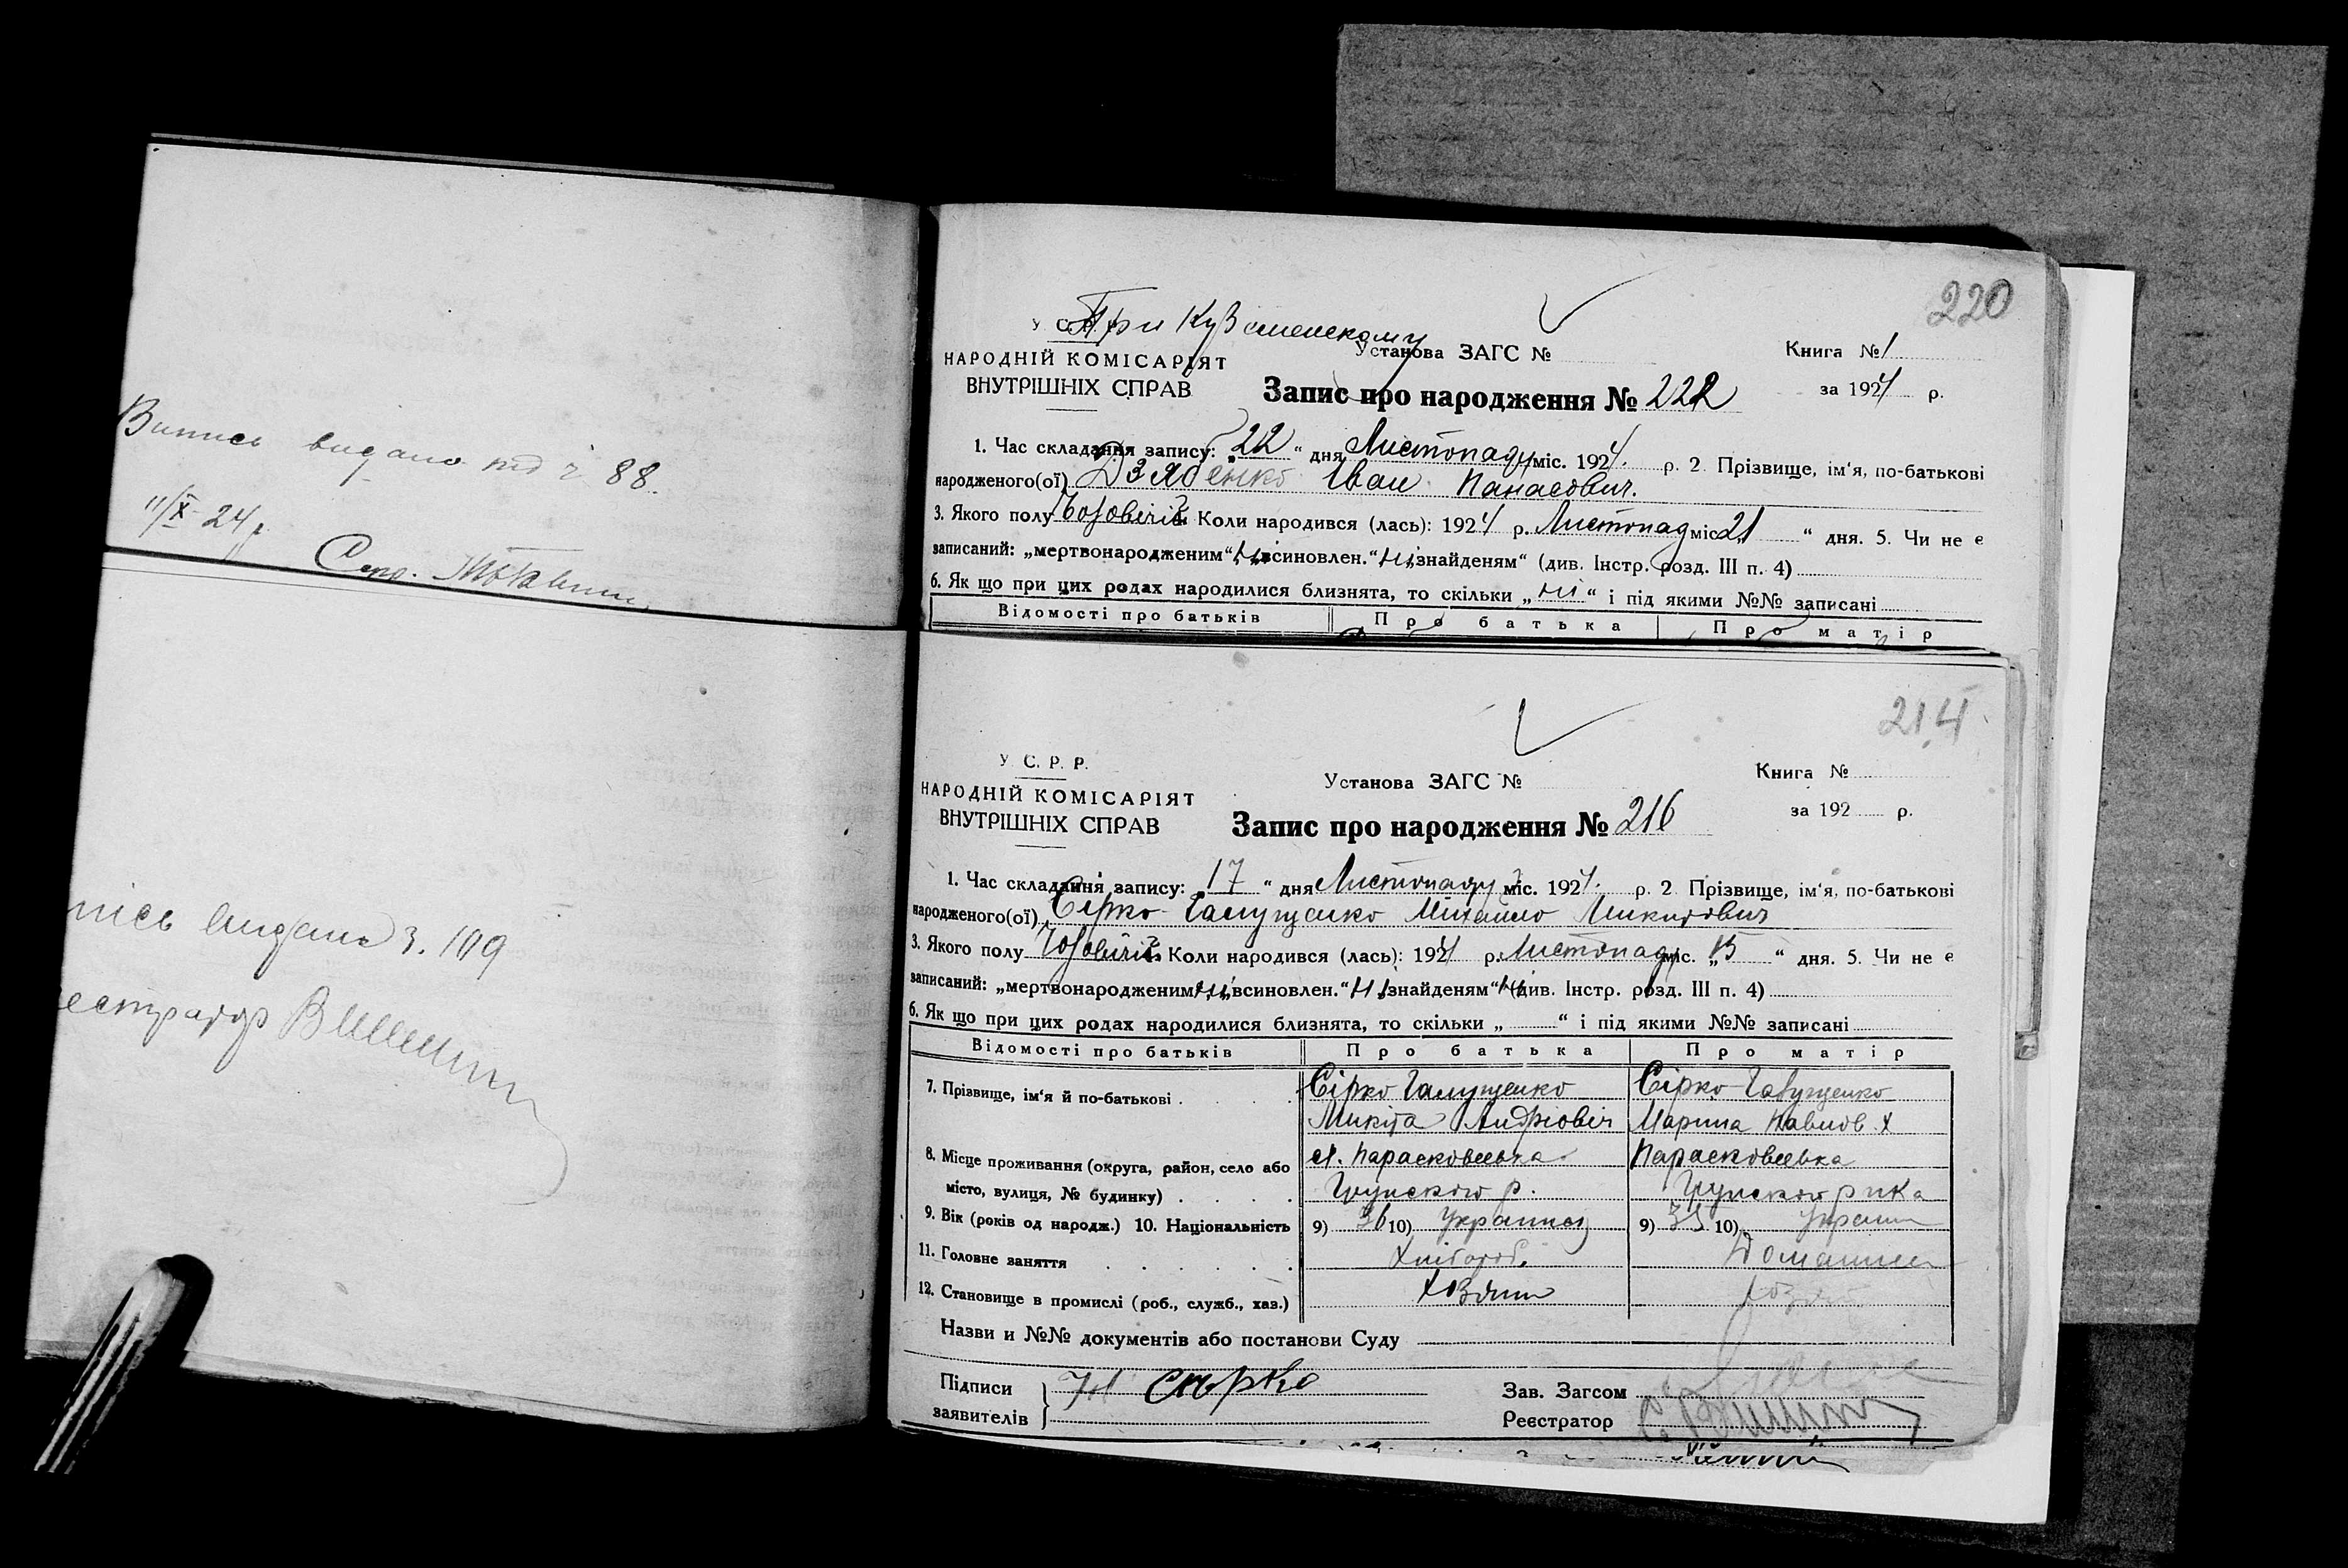 Випись видано під ч 88.
11/X 24 р
Секр.
пісь видана з. 109
еєстратор
220
При Кузьменському
У. С. Р. Р.
Установа ЗАГС №
Книга № 1
НАРОДНІЙ КОМІСАРІЯТ
ВНУТРІШНІХ СПРАВ
Запис про народження № 222
за 1924 р.
1. Час складання запису: „22“ дня Листопаду міс. 1924. р. 2. Прізвище, ім'я, по-батькові
народженого(ої) Дзябенко Іван Панасович.
3. Якого полу Чоловічої Коли народився (лась): 1924 р. Листопад міс. 21 “ дня. 5. Чи не є
записаний: „мертвонародженим“ ні, „всиновлен.“ ні, „знайденям“ (див. Інстр. розд. III п. 4)
6. Як що при цих родах народилися близнята, то скільки „ ні “ і під якими №№ записані
Відомості про батьків Про батька Про матір
214
У. С. Р. Р.
Установа ЗАГС №
Книга №
НАРОДНІЙ КОМІСАРІЯТ
ВНУТРІШНІХ СПРАВ
Запис про народження № 216
за 192 р.
1. Час складання запису: „17“ дня Листопаду міс. 1924. р. 2. Прізвище, ім'я, по-батькові
народженого(ої) Сірко-Галущенко Михайло Микитович
3. Якого полу Чоловічої Коли народився (лась): 1924 р. Листопаду міс. „15 “ дня. 5. Чи не є
записаний: „мертвонародженим“ ні, „всиновлен.“ ні, „знайденям“ ні (див. Інстр. розд. III п. 4)
6. Як що при цих родах народилися близнята, то скільки „ “ і під якими №№ записані
Відомості про батьків Про батька Про матір
7. Прізвище, ім'я й по-батькові Сірко Галущенко Сірко-Галущенко
Микита Андріовіч Марина Павлов.
8. Місце проживання (округа, район, село або х. Парасковеевка Парасковеевка
місто, вулиця, № будинку) Грунського р. Грунського р-ка
9. Вік (років од народж.) 10. Національність 9) 36 10) Украинец 9) 35 10) Украин
11. Головне заняття Хлібороб. Домашнє
12. Становище в промислі (роб., служб., хаз.) Хозяин хозяй
Назви и №№ документів або постанови Суду
Підписи Сърко
заявителів
Зав. Загсом
Реєстратор